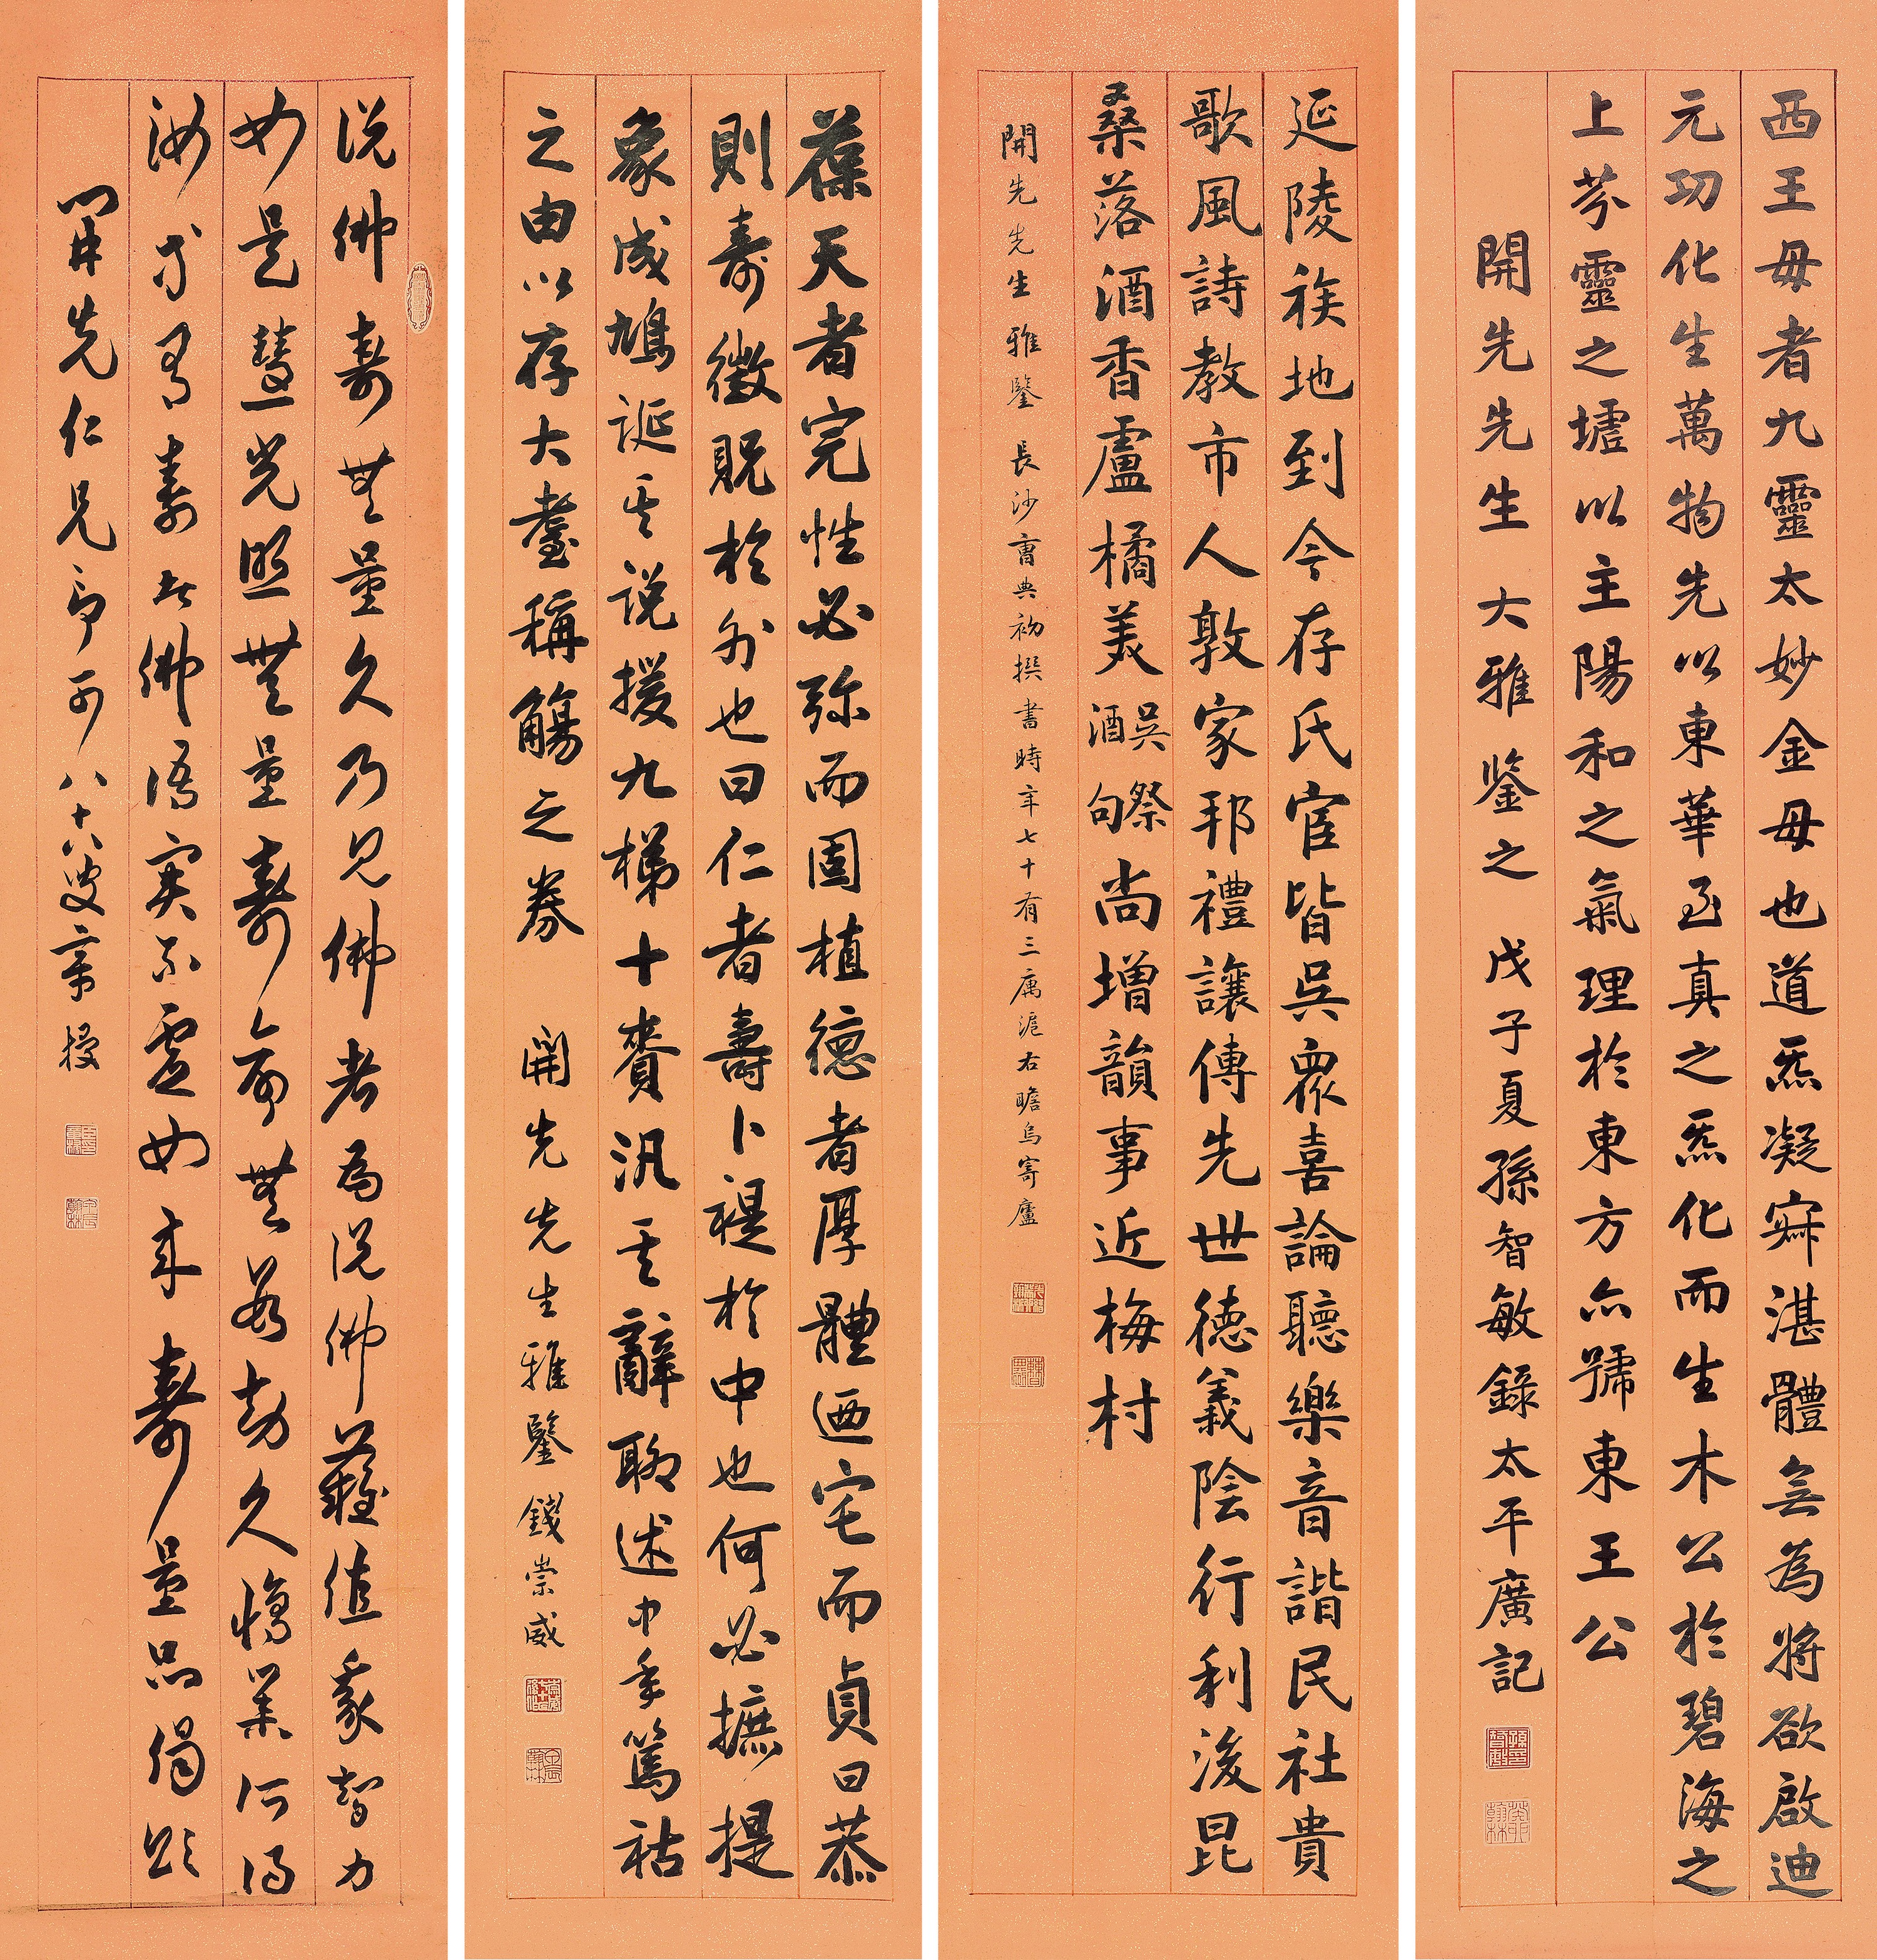 西王母者九靈太妙金母也道炁凝寂湛體無為將欲啟迪
元功化生萬物先以東華至真之炁化而生木公於碧海之
上芬靈之墟以主陽和之氣理於東方亦號東王公
開先先生 大雅鉴之 戊子夏孫智敏錄太平廣記
延陵族地到今存氏宦皆吳衆喜論聽樂音諧民社貴
歌風詩教市人敦家邦禮讓傳先世德義陰行利後昆
桑落酒香盧橘美吳祭酒句尚增韻事近梅村
開先先生 雅鑒 長沙曹典初撰書時年七十有三寓滬右瞻烏寄廬
葆天者完性必弥而固植德者厚體迺宅而貞曰恭
則壽徵貺於外也曰仁者壽卜禔於中也何必摭提
象成鳩誕其説援九梯十賚汎其辭聊述中年篤祜
之由以存大耋稱觴之券 開先先生雅鑒 錢崇威
说佛壽無量久乃見佛者為说佛難值我智力
如是慧光照無量壽命無数劫久修業所得
汝等有壽者佛语实不虚如来壽量品偈颂
開先仁兄 八十八叟 章梫